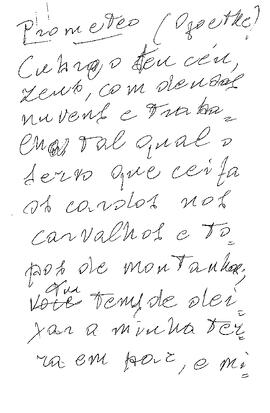 Prometeo (Goethe)
Cubra o teu céu,
Zeus, com densas
nuvens e traba=
lha tal qual o
servo que ceifa
os cardos nos
carvalhos e to=
pos de montanha;
Tua
tens de dei=
xar a minha ter=
ra em paz, e mi=